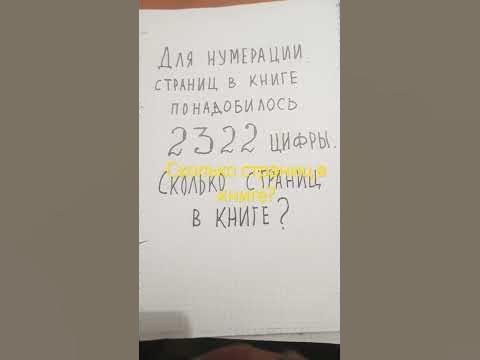 Для нумерации
страниц в книге
понадобилось
2322 цифры.
Сколько страниц
в книге?
Сколько страниц в
книге?